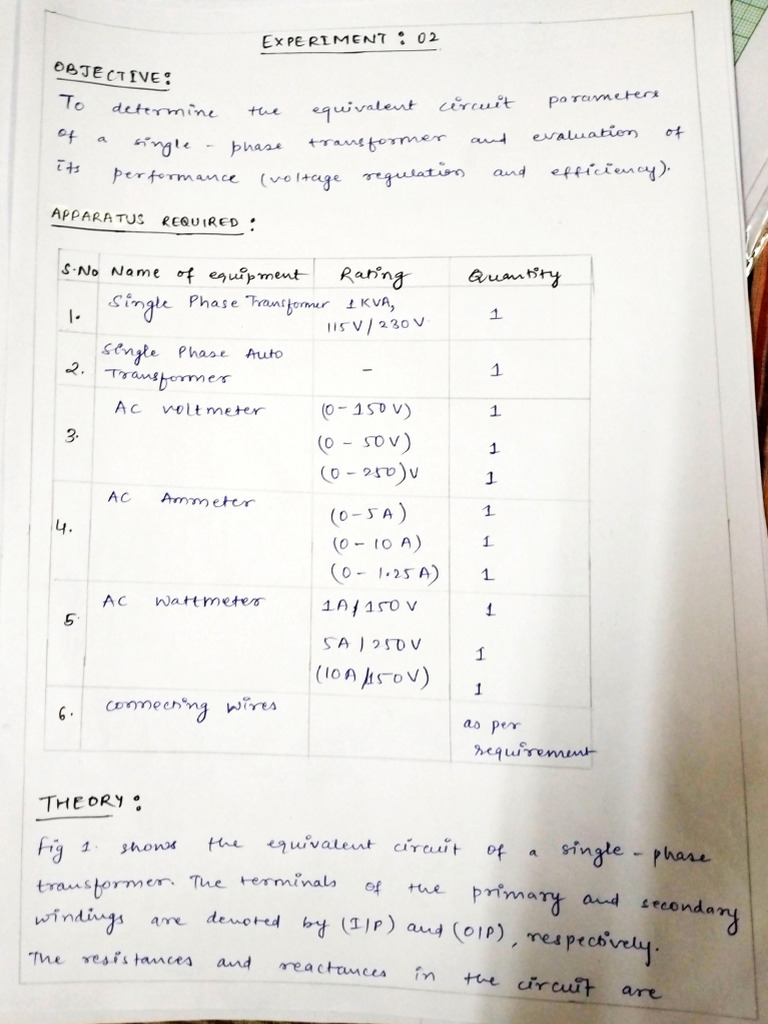 EXPERIMENT : 02
OBJECTIVE:
To determine the equivalent circuit parameters
of a single-phase transformer and evaluation of
its performance (voltage regulation and efficiency).
APPARATUS REQUIRED :
S.No Name of equipment Rating Quantity
1. Single Phase Transformer 1KVA, 1
115V/230V
2. Single Phase Auto
Transformer - 1
3. AC voltmeter (0-150V) 1
(0-50V) 1
(0-250)V 1
4. AC Ammeter (0-5A) 1
(0-10A) 1
(0-1.25A) 1
5. AC Wattmeter 1A/150V 1
5A/250V 1
(10A/150V) 1
6. Connecting Wires as per
requirement
THEORY :
Fig 1. shows the equivalent circuit of a single-phase
transformer. The terminals of the primary and secondary
windings are denoted by (I/P) and (O/P), respectively.
The resistances and reactances in the circuit are